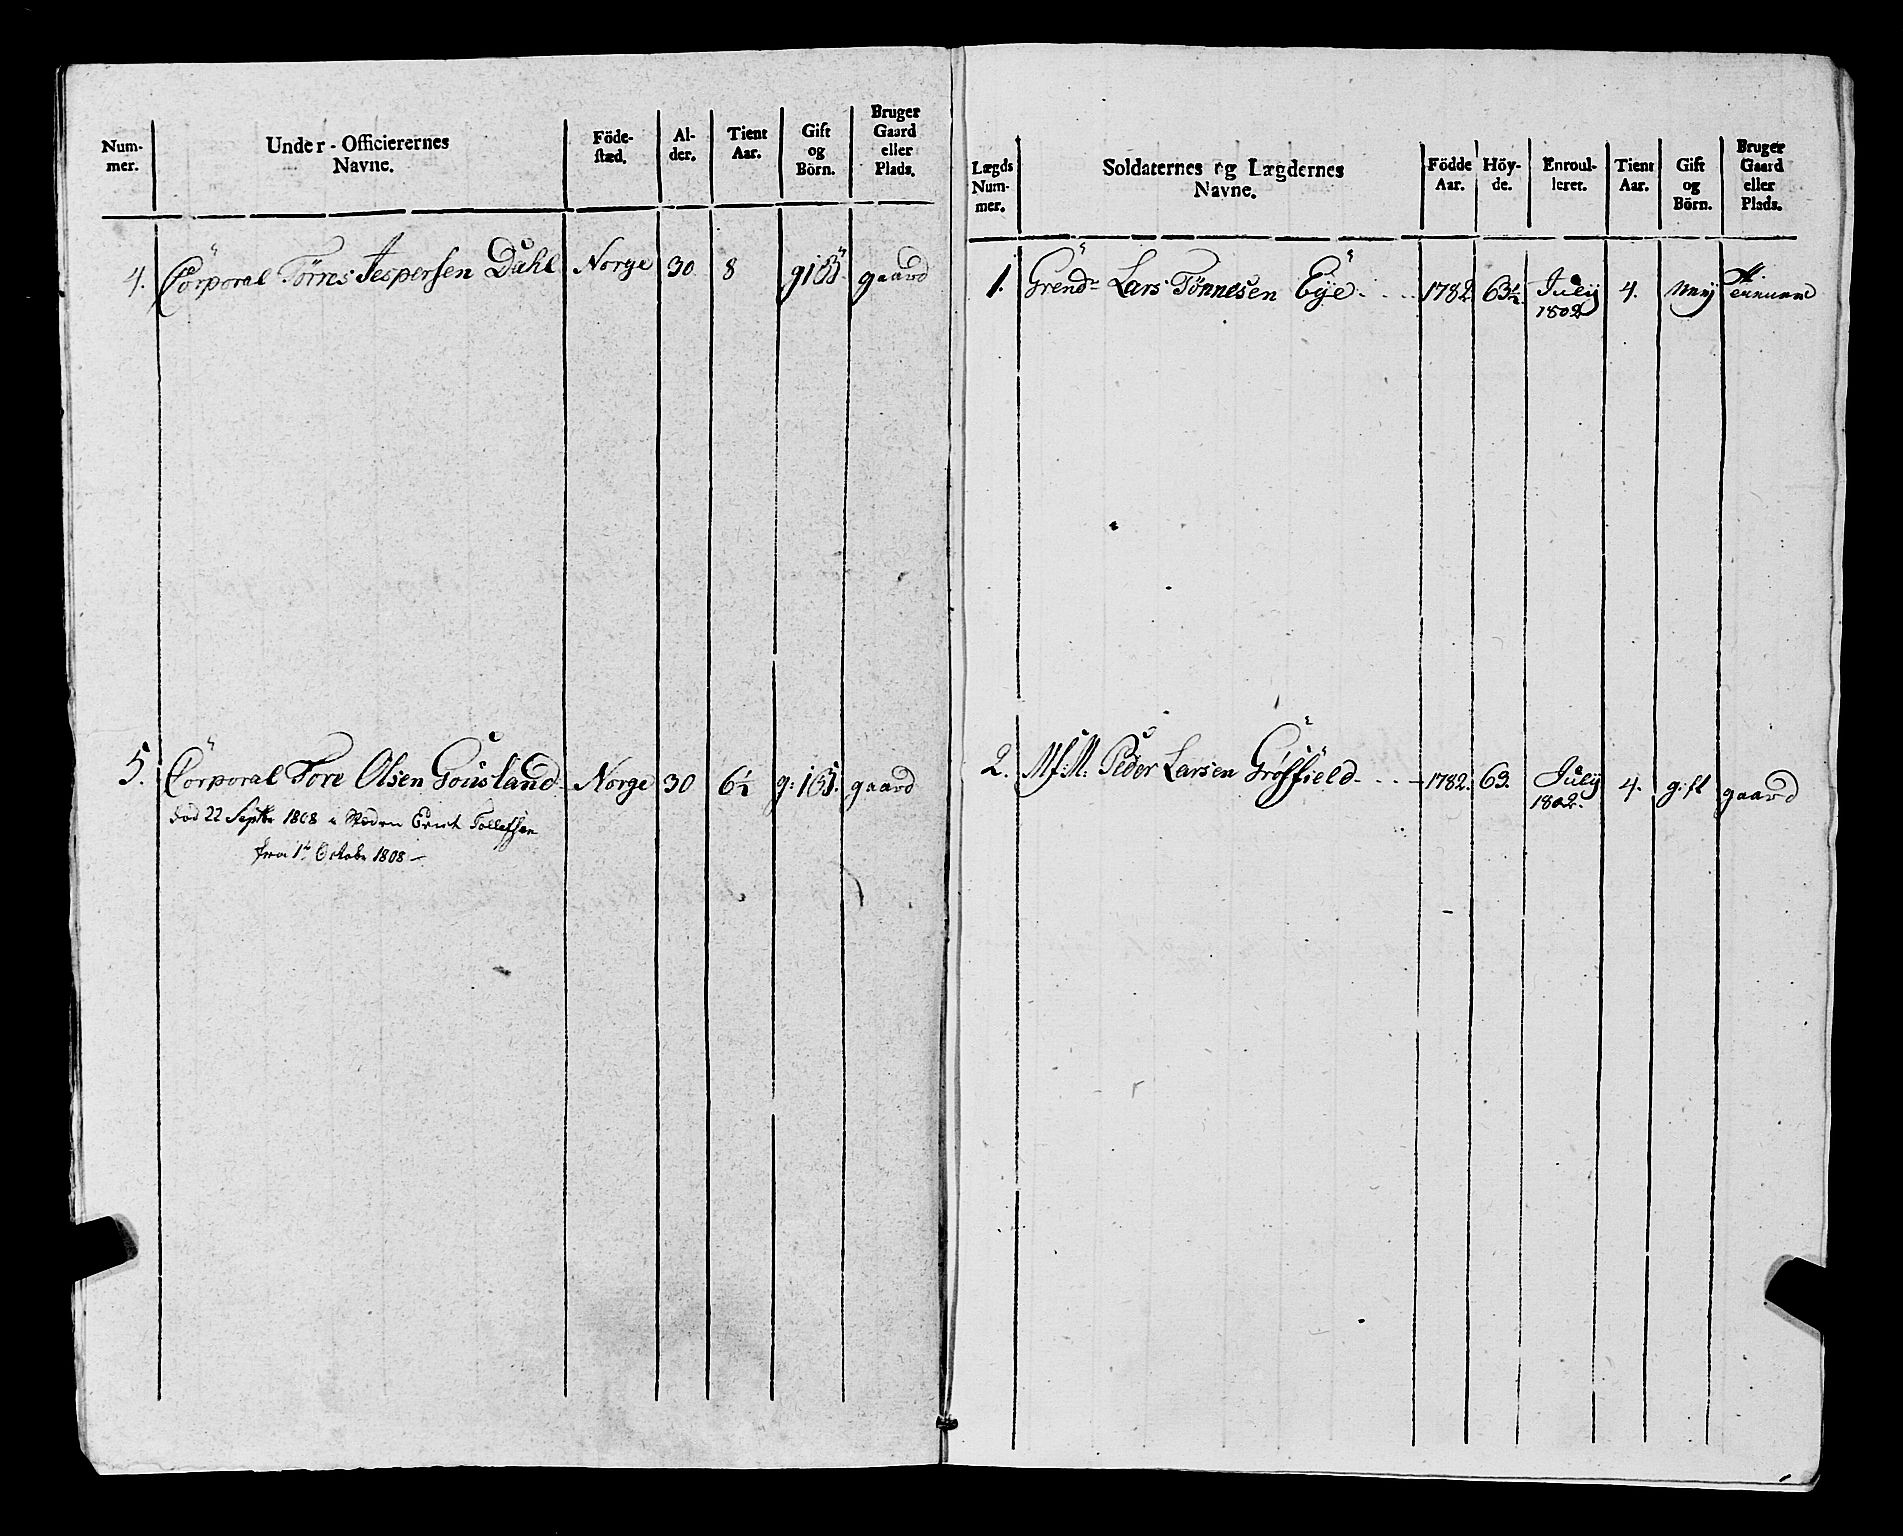 Num-
mer.
Under-Officierernes
Navne.
Föde-
stæd.
Al-
der.
Tient
Aar.
Gift
og
Börn.
Bruger
Gaard
eller
Plads.
4. Corporal Tørres Jespersen Dahl Norge 30 8 g 1 B. gaard
5. Corporal Tore Olsen Gousland Norge 30 6½ g: 1 B. gaard
død 22 Septbr 1808 i Steden Erich Tollefsen
fra 1te Octobr 1808 -
Lægds
Num-
mer.
Soldaternes og Lægdernes
Navne.
Födde
Aar.
Höy-
de.
Enroul-
leret.
Tient
Aar.
Gift
og
Börn.
Bruger
Gaard
eller
Plads.
1. Grendr Lars Tønnesen Eÿe 1782 63½ July 4. Neij
1802
2. M: Peder Larsen Grøsfield 1782. 63. July 4. gift gaard
1802.